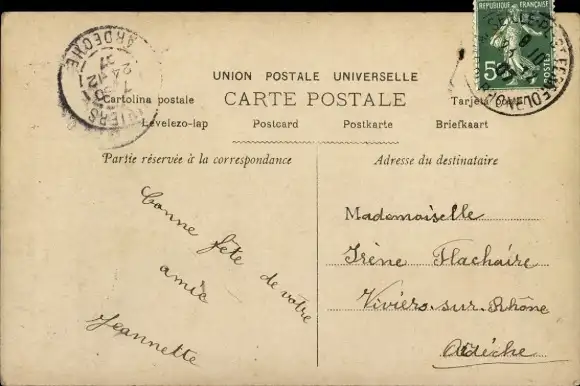 RÉPUBLIQUE FRANÇAISE
5
POSTES
ARDÈCHE
VIVIERS
UNION POSTALE UNIVERSELLE
Cartolina postale CARTE POSTALE Tarjeta postal
Levelezo-lap Postcard Postkarte Briefkaart
Partie réservée à la correspondance
Adresse du destinataire
Bonne fête de votre
amie
Jeannette
Mademoiselle
Irène Flachaire
Viviers-sur-Rhône
Ardèche